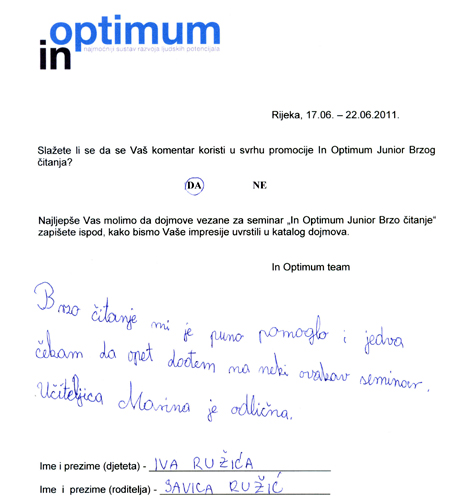 optimum
in
najmoćniji sustav razvoja ljudskih potencijala
Rijeka, 17.06. – 22.06.2011.
Slažete li se da se Vaš komentar koristi u svrhu promocije In Optimum Junior Brzog
čitanja?
DA NE
Najljepše Vas molimo da dojmove vezane za seminar „In Optimum Junior Brzo čitanje“
zapišete ispod, kako bismo Vaše impresije uvrstili u katalog dojmova.
In Optimum team
Brzo čitanje mi je puno pomoglo i jedva
čekam da opet dođem na neki ovakav seminar.
Učiteljica Marina je odlična.
Ime i prezime (djeteta) - IVA RUŽIĆA
Ime i prezime (roditelja) - SAVICA RUŽIĆ